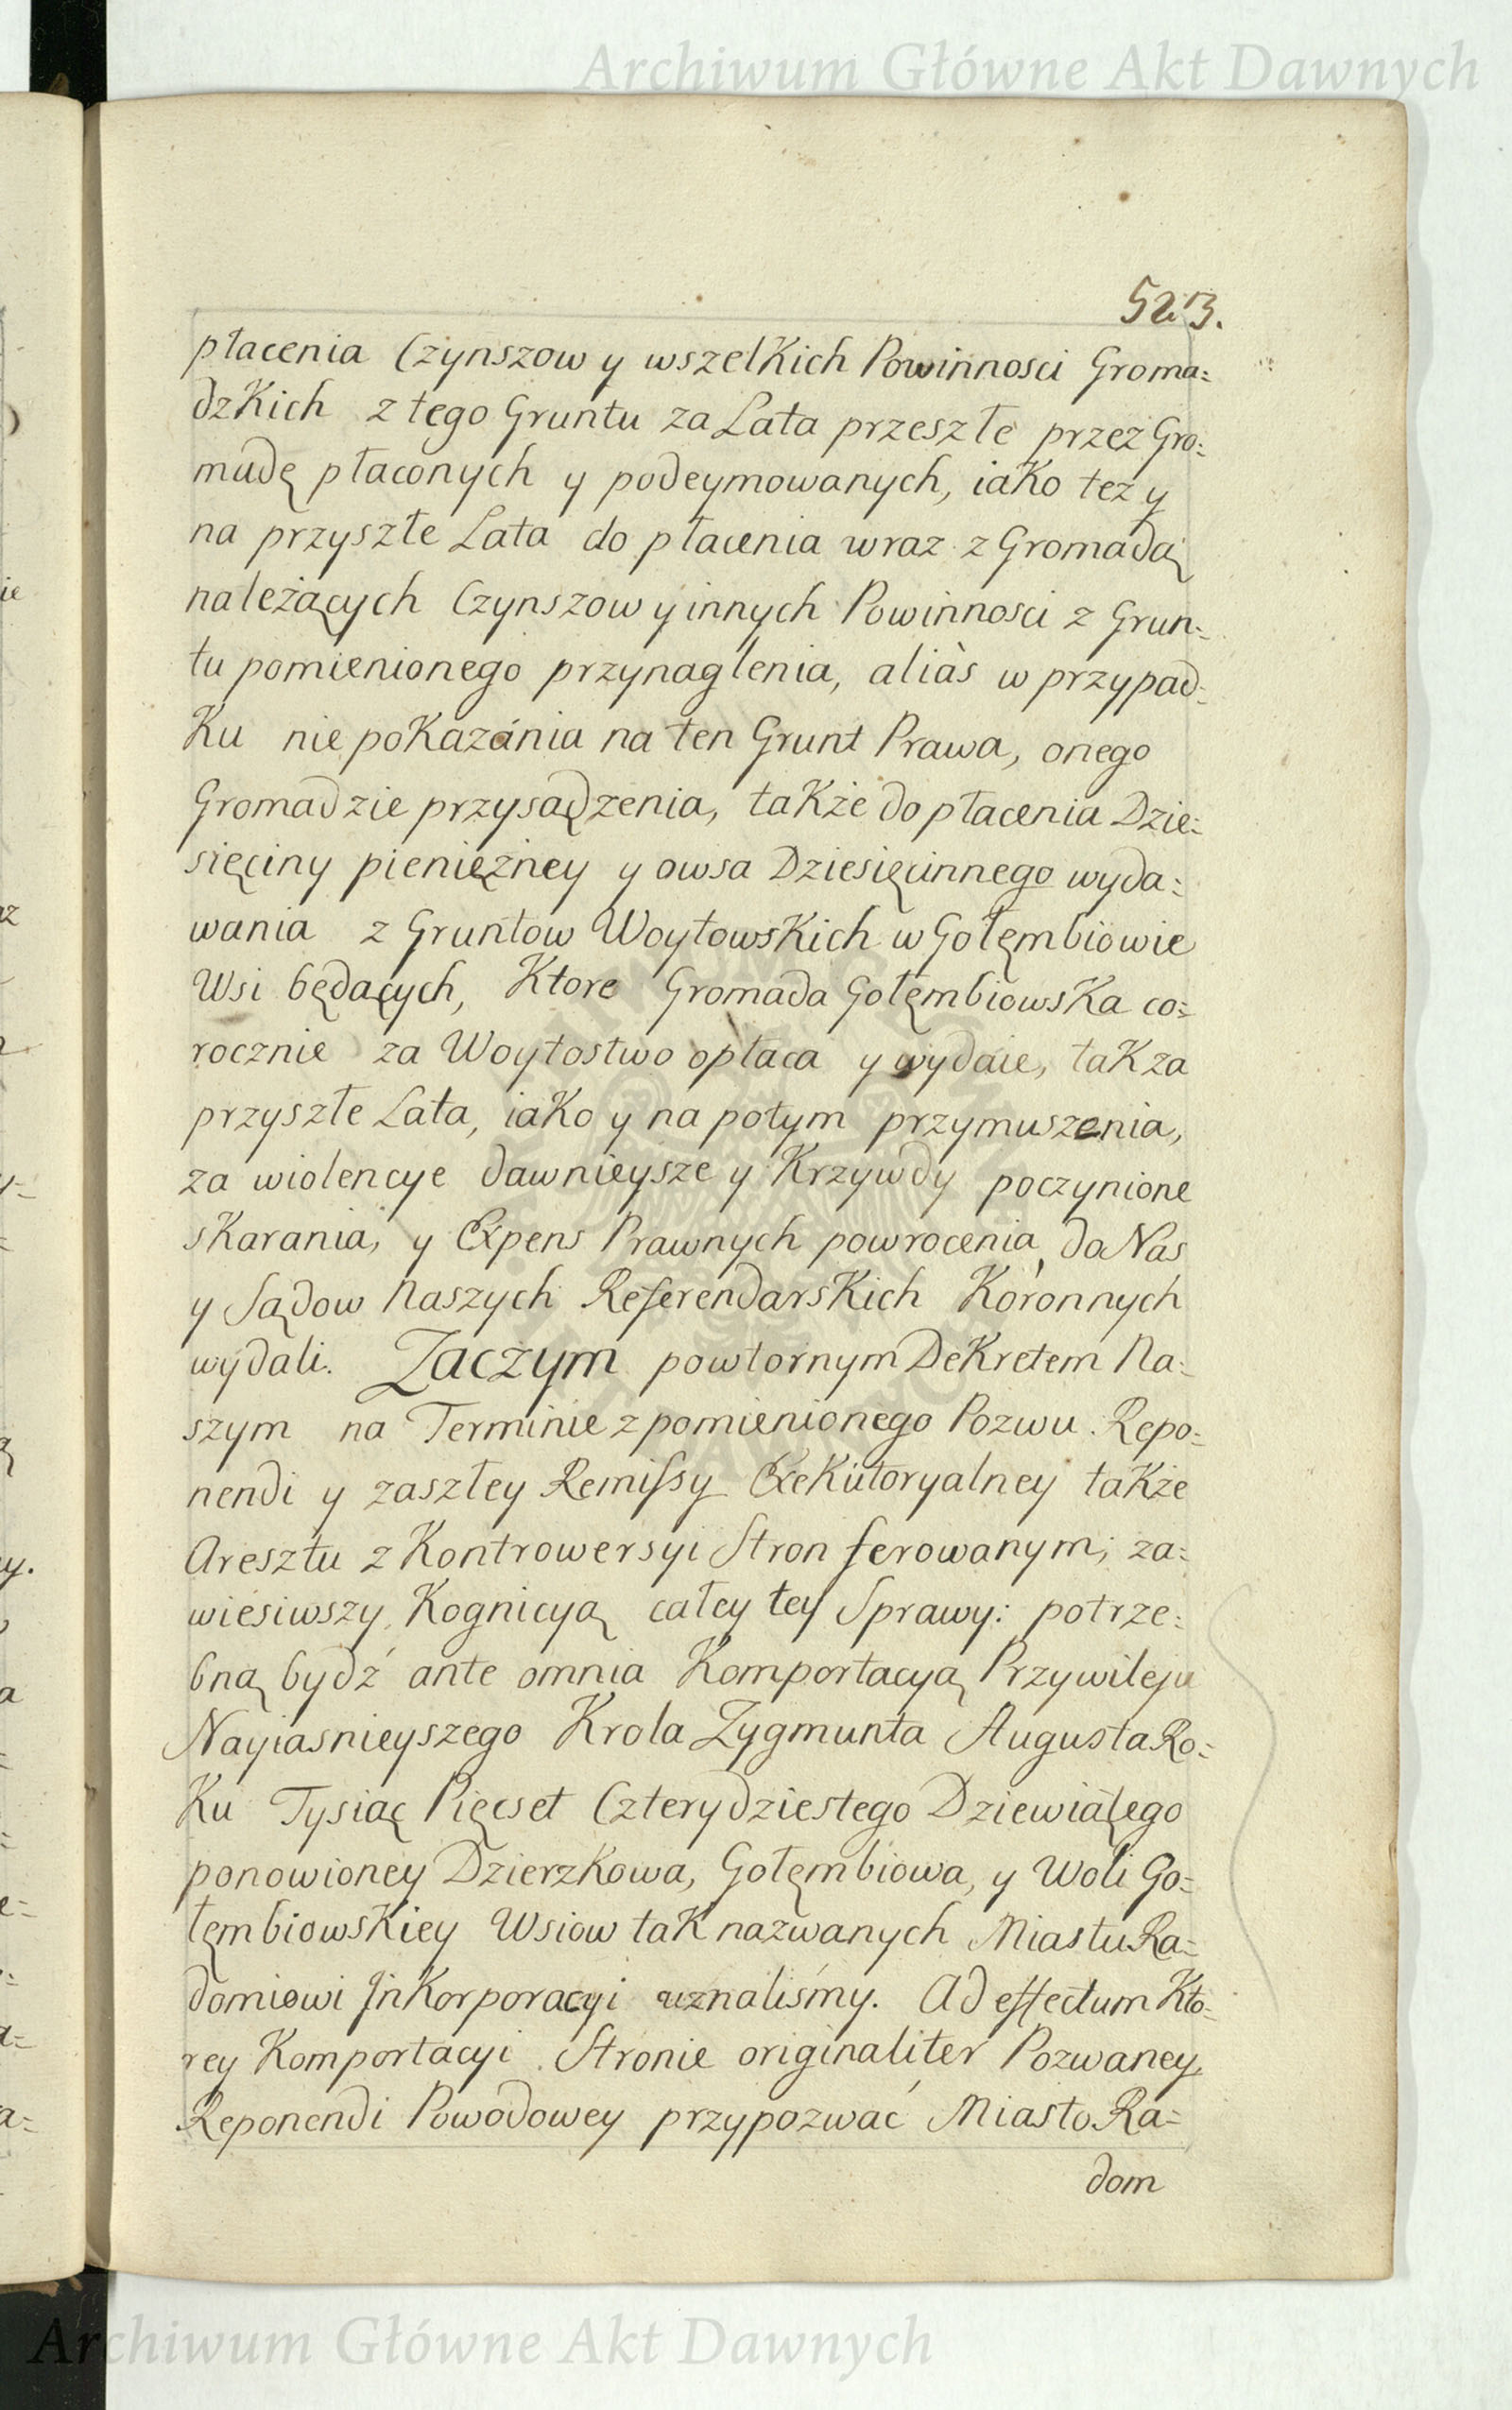 Archiwum Główne Akt Dawnych
523.
płacenia Czynszow y wszelkich Powinnosci Groma=
dzkich z tego Gruntu za Lata przeszłe przez Gro=
madę płaconych y podeymowanych, iako też y
na przyszłe Lata do płacenia wraz z Gromadą
należących Czynszow y innych Powinnosci z Grun=
tu pomienionego przynaglenia, aliàs w przypad=
ku nie pokazánia na ten Grunt Prawa, onego
Gromadzie przysądzenia, także do płacenia Dzie=
sięciny pieniężney y owsa Dziesięcinnego wyda=
wania z Gruntow Woytowskich w Gołębiowie
Wsi będących, Ktore Gromada Gołembiowska co=
rocznie za Woytostwo opłaca y wydaie, tak za
przyszłe Lata, iako y na potym przymuszenia,
za wiolencye dawnieysze y Krzywdy poczynione
skarania, y Expens Prawnych powrocenia, do Nas
y Sądow Naszych Referendarskich Koronnych
wydali. Zaczym powtornym Dekretem Na=
szym na Terminie z pomienionego Pozwu Repo=
nendi y zaszłey Remissy Exekutoryalney także
Aresztu z Kontrowersyi Stron ferowanym, za=
wiesiwszy Kognicyą całey tey Sprawy: potrze=
bną bydź ante omnia Komportacyą Przywileju
Nayiasnieyszego Krola Zygmunta Augusta Ro=
ku Tysiąc Pięcset Czterydziestego Dziewiątego
ponowioney Dzierzkowa, Gołęmbiowa, y Woli Go=
łęmbiowskiey Wsiow tak nazwanych Miastu Ra=
domiowi Jnkorporacyi uznaliśmy. Ad effectum Kto=
rey Komportacyi Stronie originaliter Pozwaney
Reponendi Powodowey przypozwać Miasto Ra=
dom
Archiwum Główne Akt Dawnych